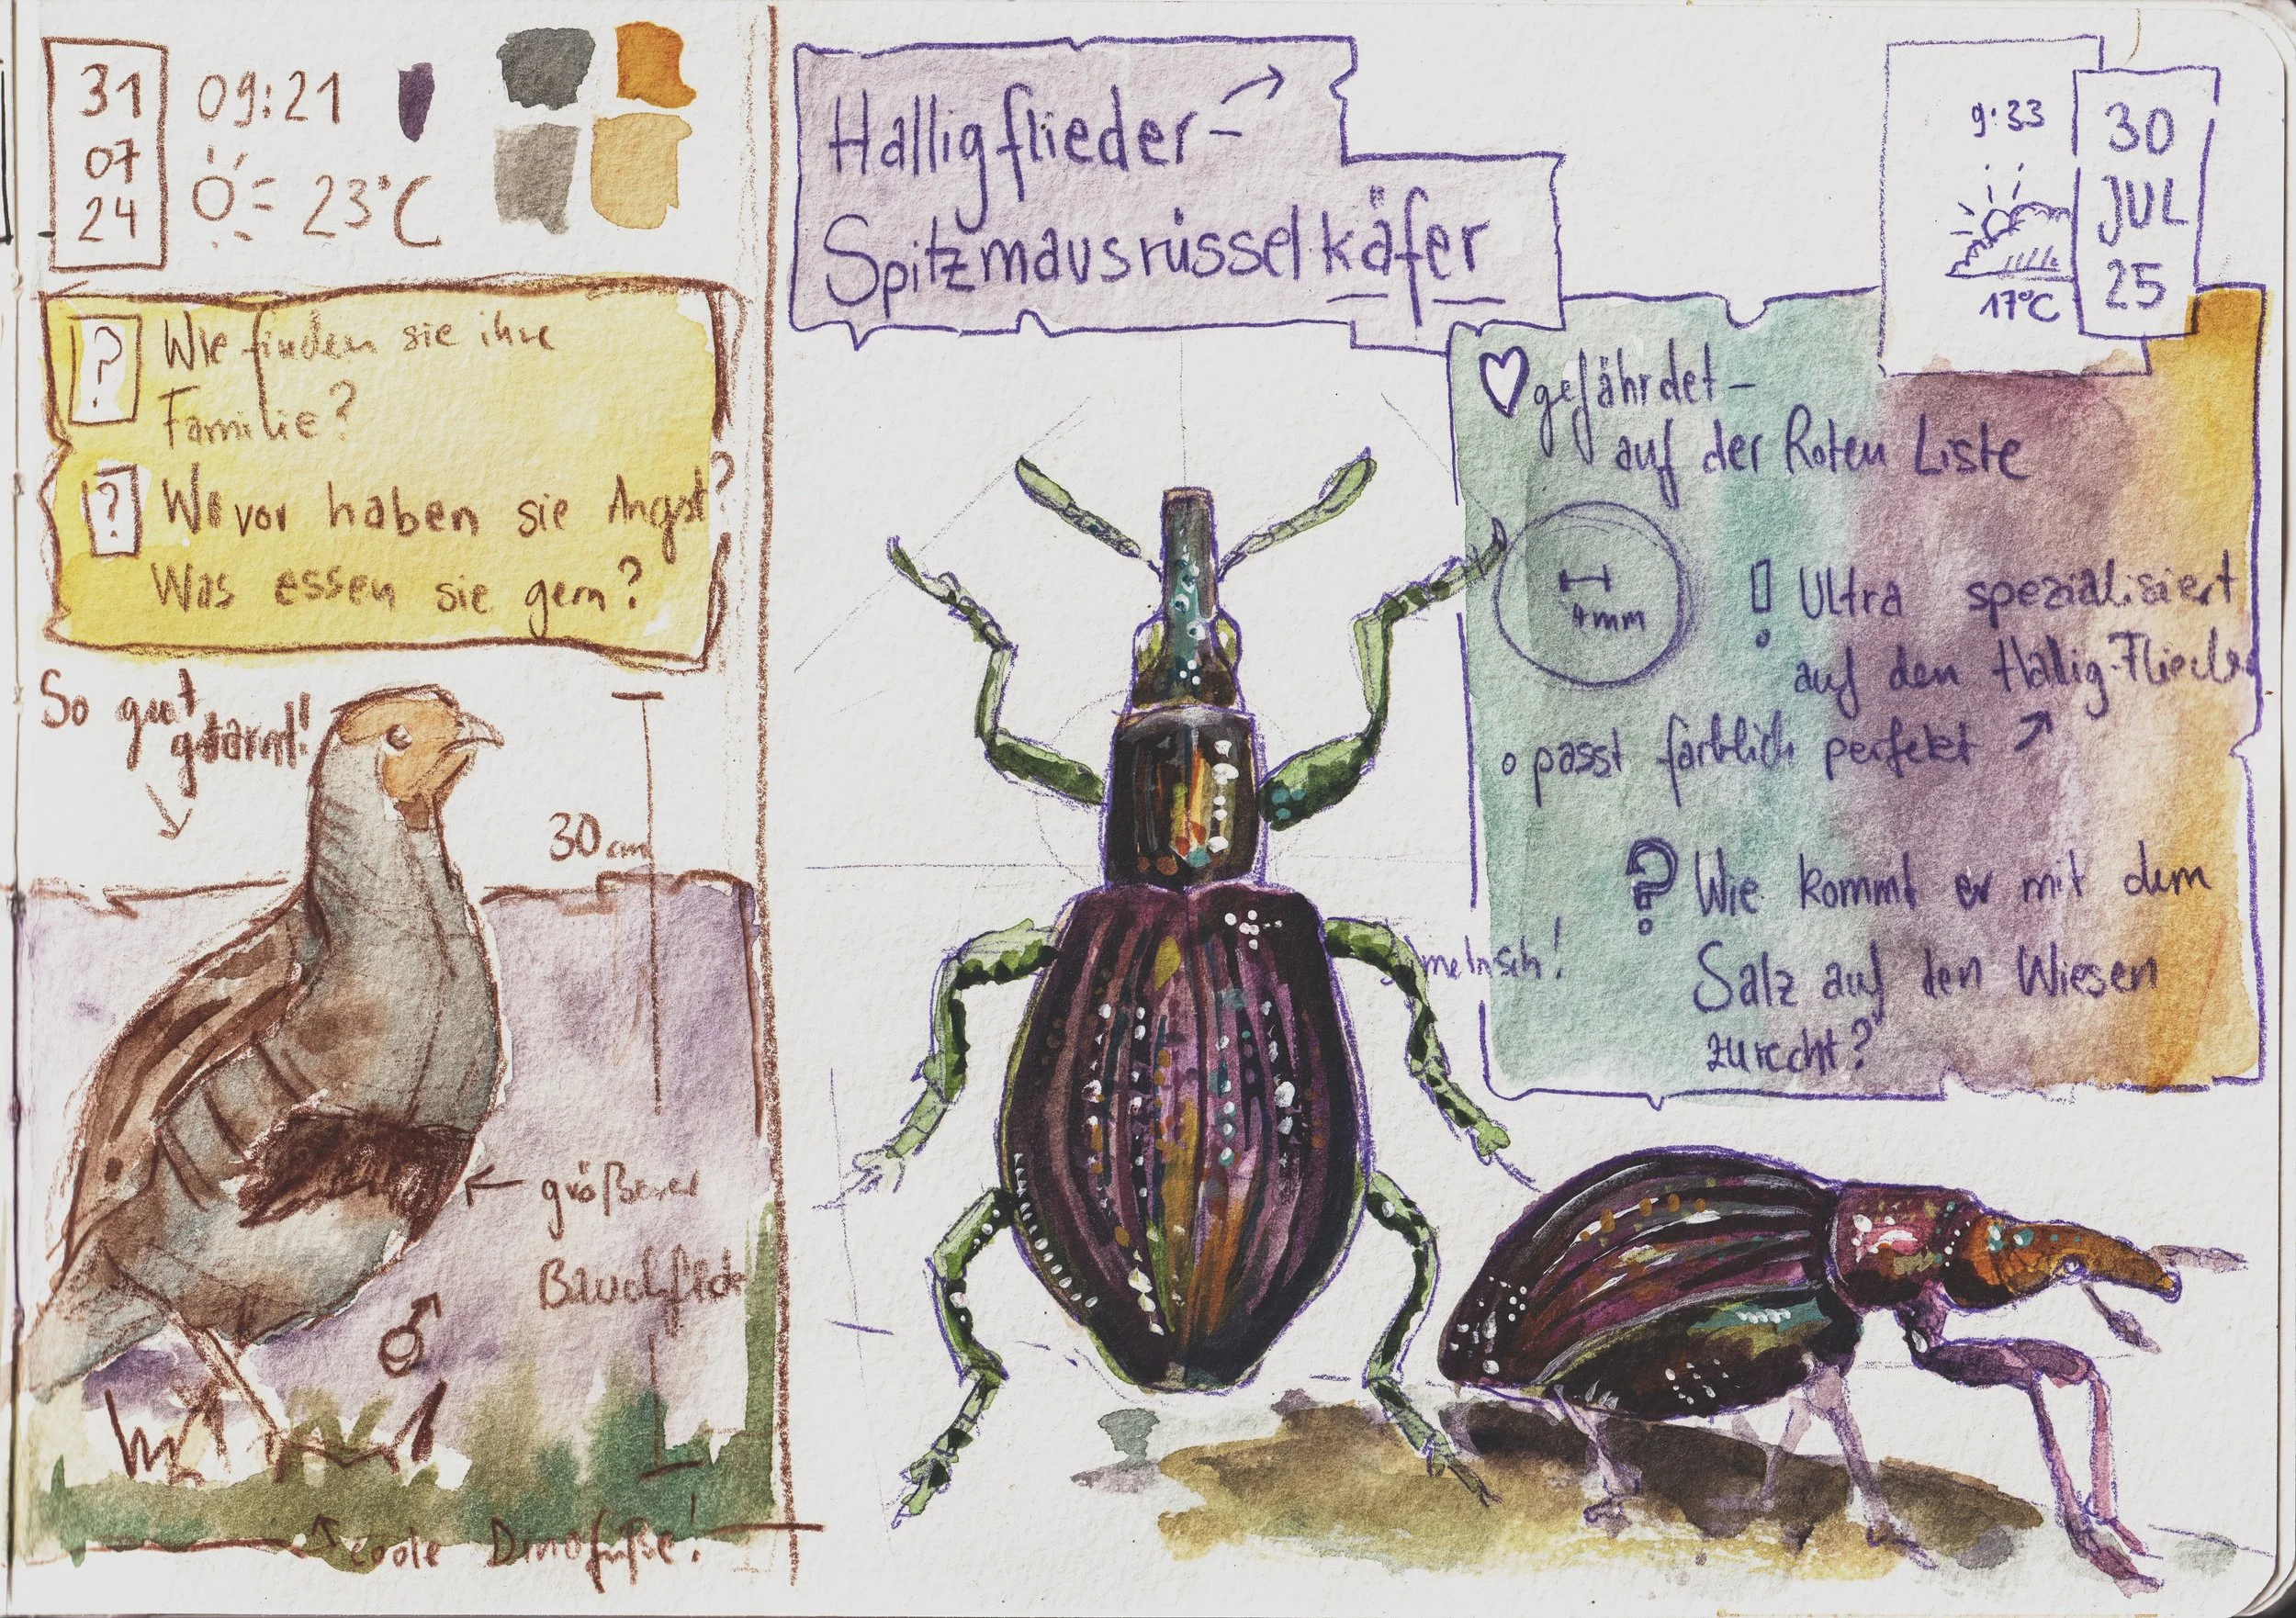 31
07
24
09:21
23°C
? Wie finden sie ihre
Familie?
? Wovor haben sie Angst?
Was essen sie gern?
So gut
getarnt!
30 cm
größerer
Bauchfleck
♂
coole Dinofüße!
Halligflieder-
Spitzmausrüsselkäfer
9:33
17°C
30
JUL
25
♡ gefährdet -
auf der Roten Liste
4mm
! Ultra spezialisiert
auf den Hallig-Flieder
o passt farblich perfekt
? Wie kommt er mit dem
Salz auf den Wiesen
zurecht?